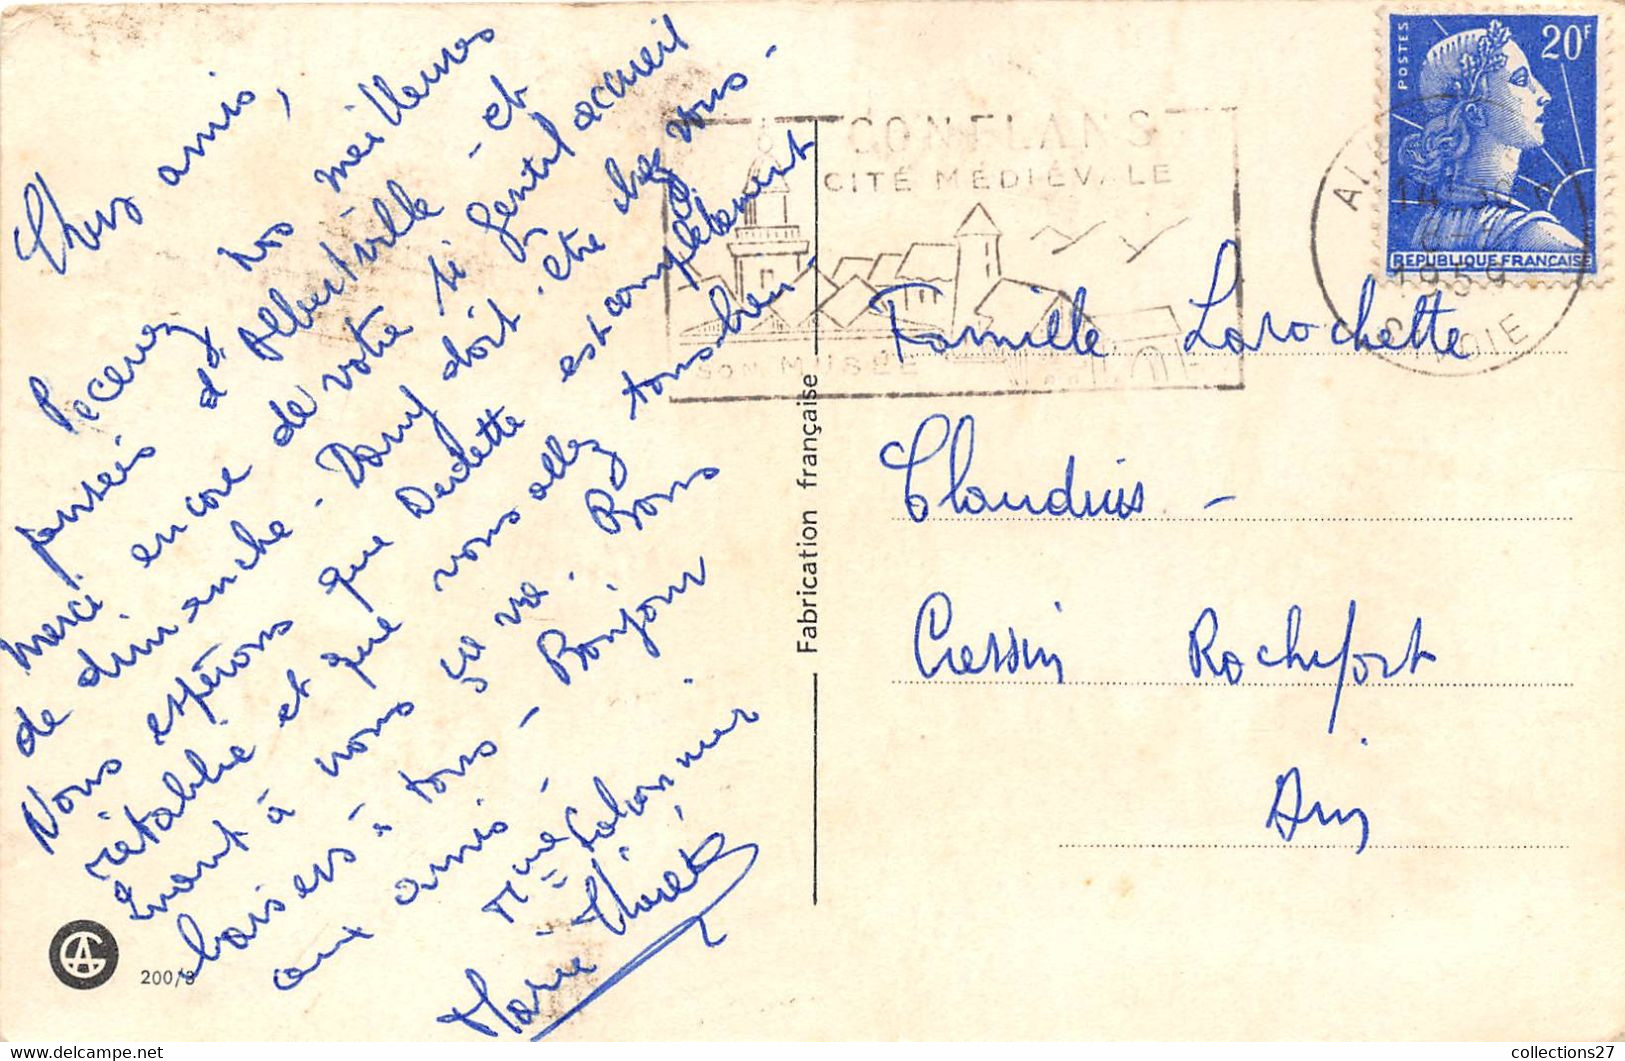 Chers amis,
Recevez nos meilleures
pensées d'Albertville - et
merci encore de votre si gentil accueil
de dimanche - Dany doit être chez vous -
Nous espérons que Dedette est complètement
rétablie et que vous allez tous bien.
Quant à nous ça va. Bons
baisers à tous - Bonjour
aux amis -
Mme
Marie Thérèse
200/8
Fabrication française
CONFLANS
CITÉ MEDIÉVALE
SON MUSÉE
POSTES
20F
REPUBLIQUE FRANÇAISE
1959
Famille Larochette
Claudius -
Cressin Rochefort
Ain
collections27